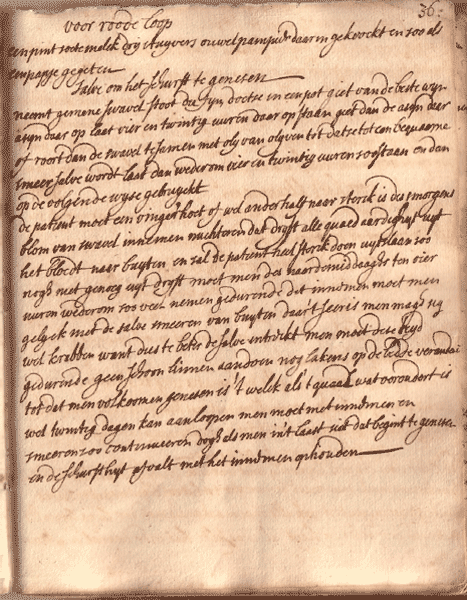 36
voor roode loop
een pint soete melck dry stuyvers ouwel pampier daer in gekoockt en soo als
een papje gegeten
Salve om het schurft te genesen
neemt gemene swavel stoot die fyn doetse in een pot giet van de beste wyn
asyn daer op laet vier en twintig uuren daer op staen giet dan de asyn daer
of roert dan de swavel te samen met oly van olyven tot datse tot een bequaeme
smeer salve wordt laet dan wederom vier en twintig uuren soo staen en dan
op de volgende wyse gebruyckt
de patient moet een vinger hoet of wel ander half naer sterck is des smorgens
blom van swavel innemen nuchteren dat dryft alle quaed aerdigheyt uyt
het bloedt naer buyten en sal de patient heel sterck doen uytslaen soo
niet genoeg uyt dryft moet men des naer de middaghs ten vier
uuren wederom soo veel nemen gedurende dit innemen moet men
gelyck met de salve smeeren van buyten daer 't seer is men mag
wel krabben want dies te beter de salve intrekt men moet dese tyd
gedurende geen schoon linnen aendoen nog lakens op de bedde veranderen
tot dat men volkoomen genesen is 't welck als 't quaed wat verouderd is
wel twintig dagen kan aenloopen men moet met innemen en
smeeren soo continueeren dogh als men siet dat begint te genesen
en de schurft uyt met het innemen ophouden